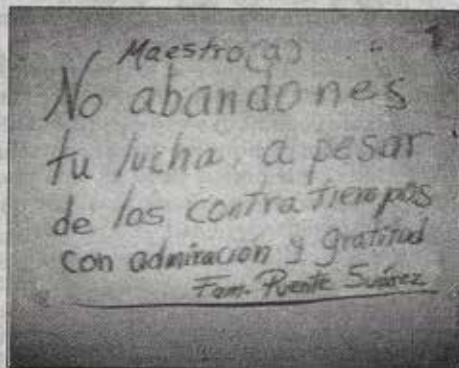 Maestro(a)
No abandones
tu lucha, a pesar
de los contratiempos
con admiración y gratitud
Fam. Puente Suárez